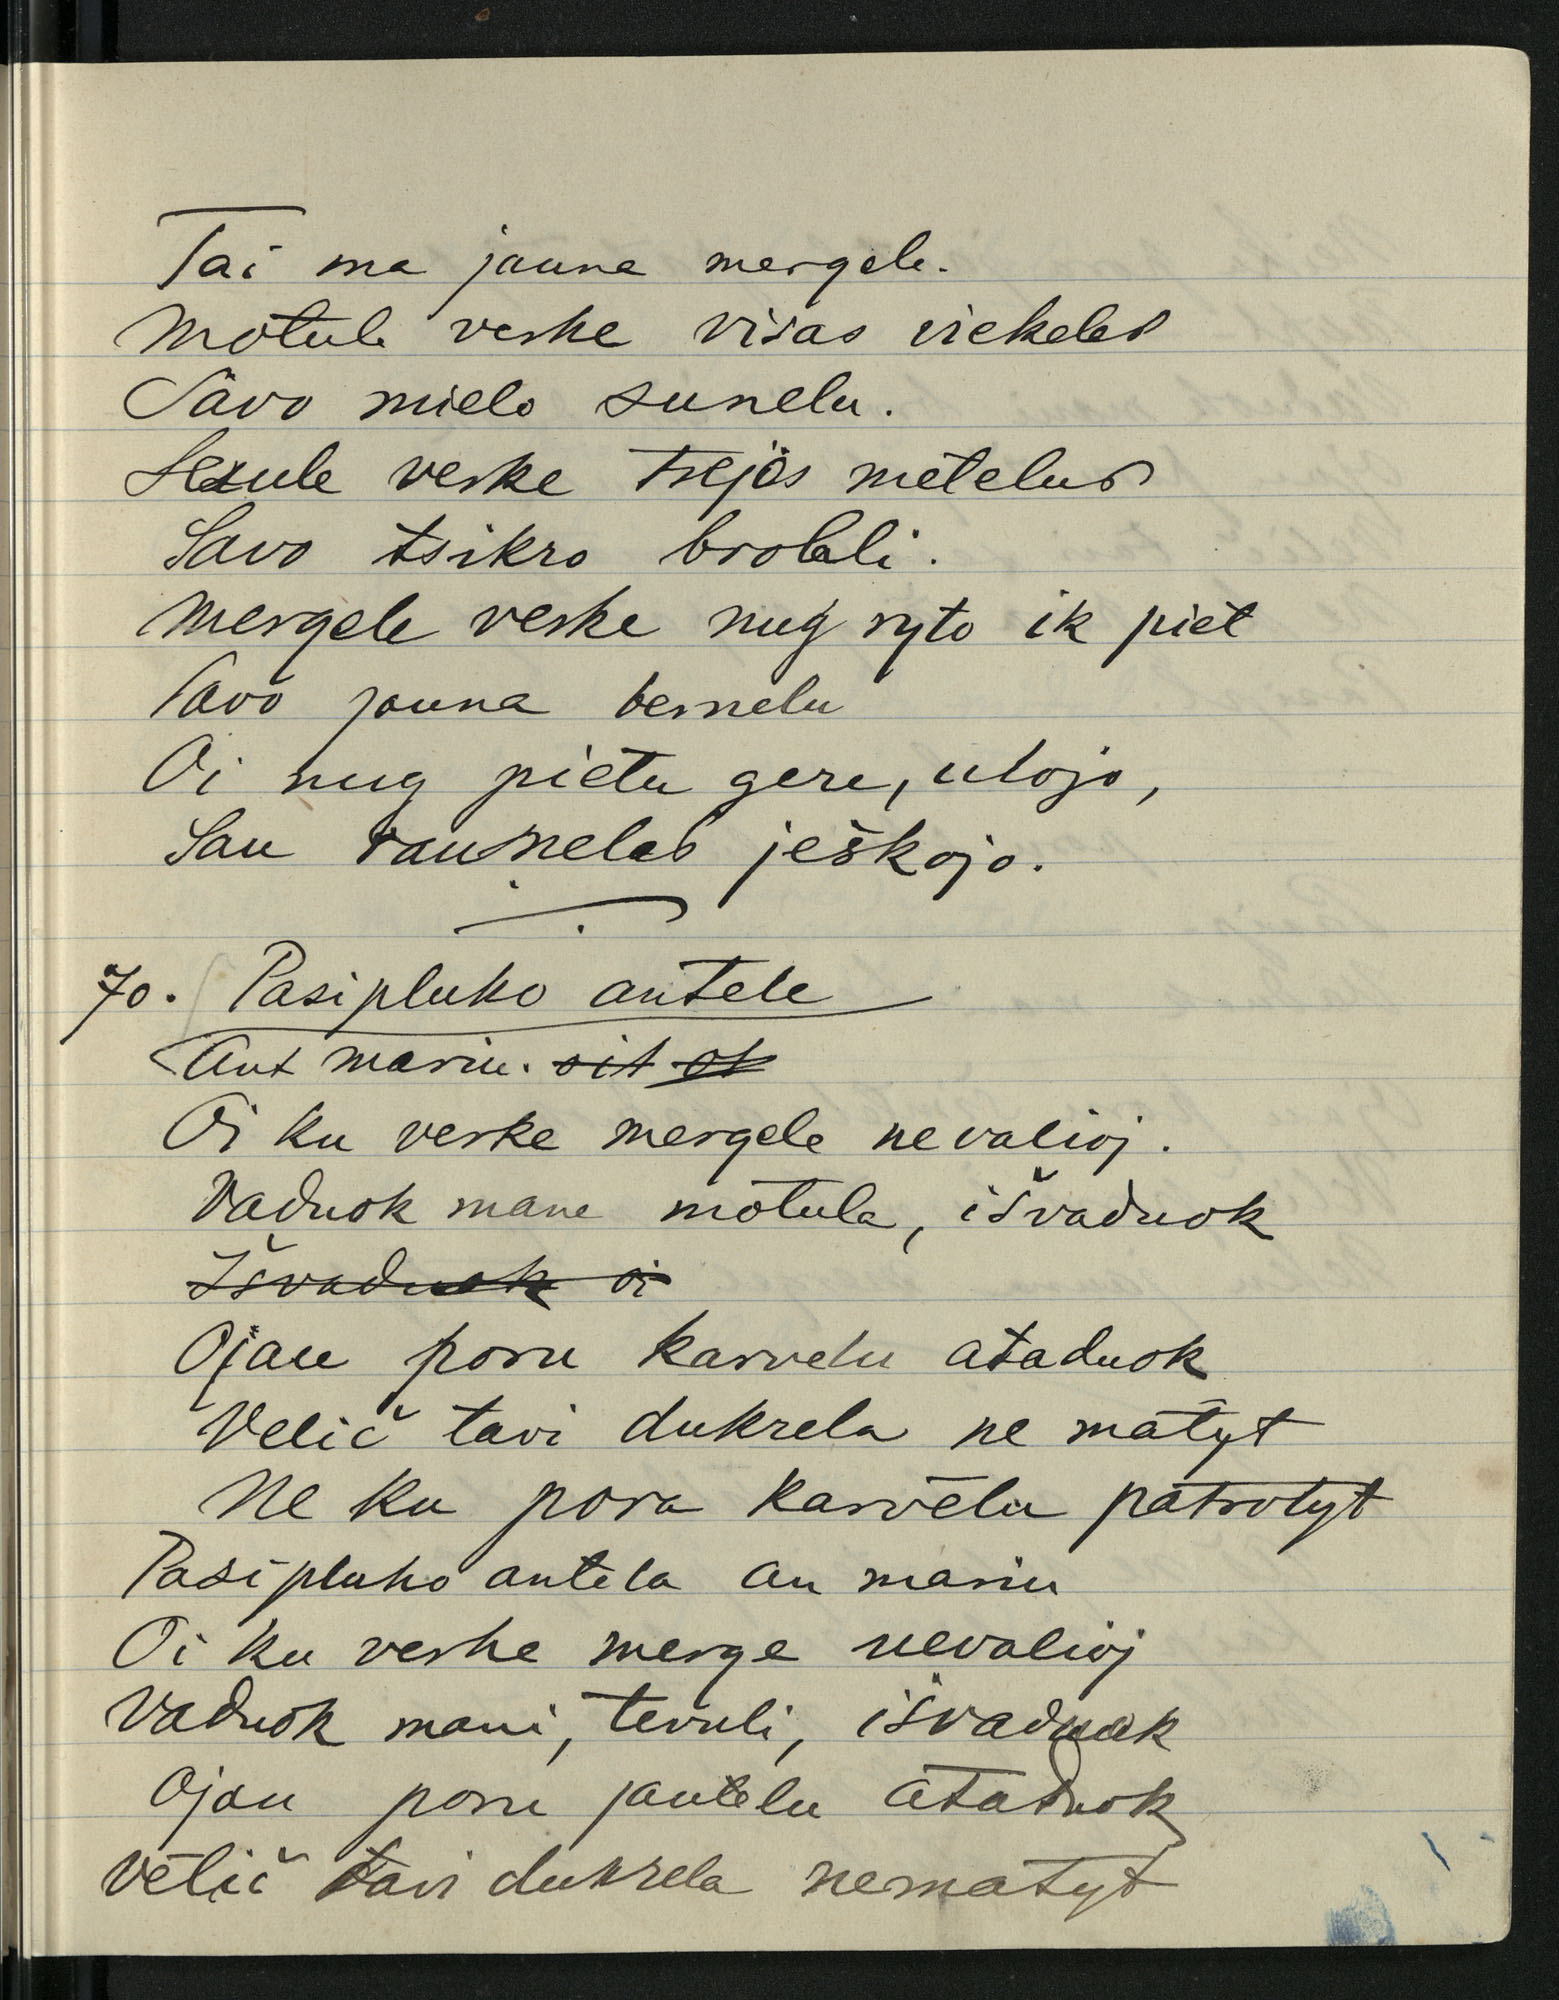 Tai ma jauna mergele.
Motule verke visas viekeles
Savo mielo sunelu.
Sezule verke trejos metelus
Savo tsikro brolali.
Mergele verke nug ryto ik piet
Savo jauna bernelu
Oi nug pietu gere, ulojo,
Sau raunelas ješkojo.
70. Pasipluko antele
Ant mariu. sit ok
Oi ku verke mergele nevalioj.
Vaduok mane motula, išvaduok
Išvaduok oi
Ojau poru karvelu ataduok
Velič tavi dukrela ne matyt
Ne ku pora karvelu patrotyt
Pasipluko antela an mariu
Oi ku verke merge nevalioj
Vaduok mani, tevuli, išvaduok
Ojau poru jautelu ataduok
velič tavi dukrela nematyt